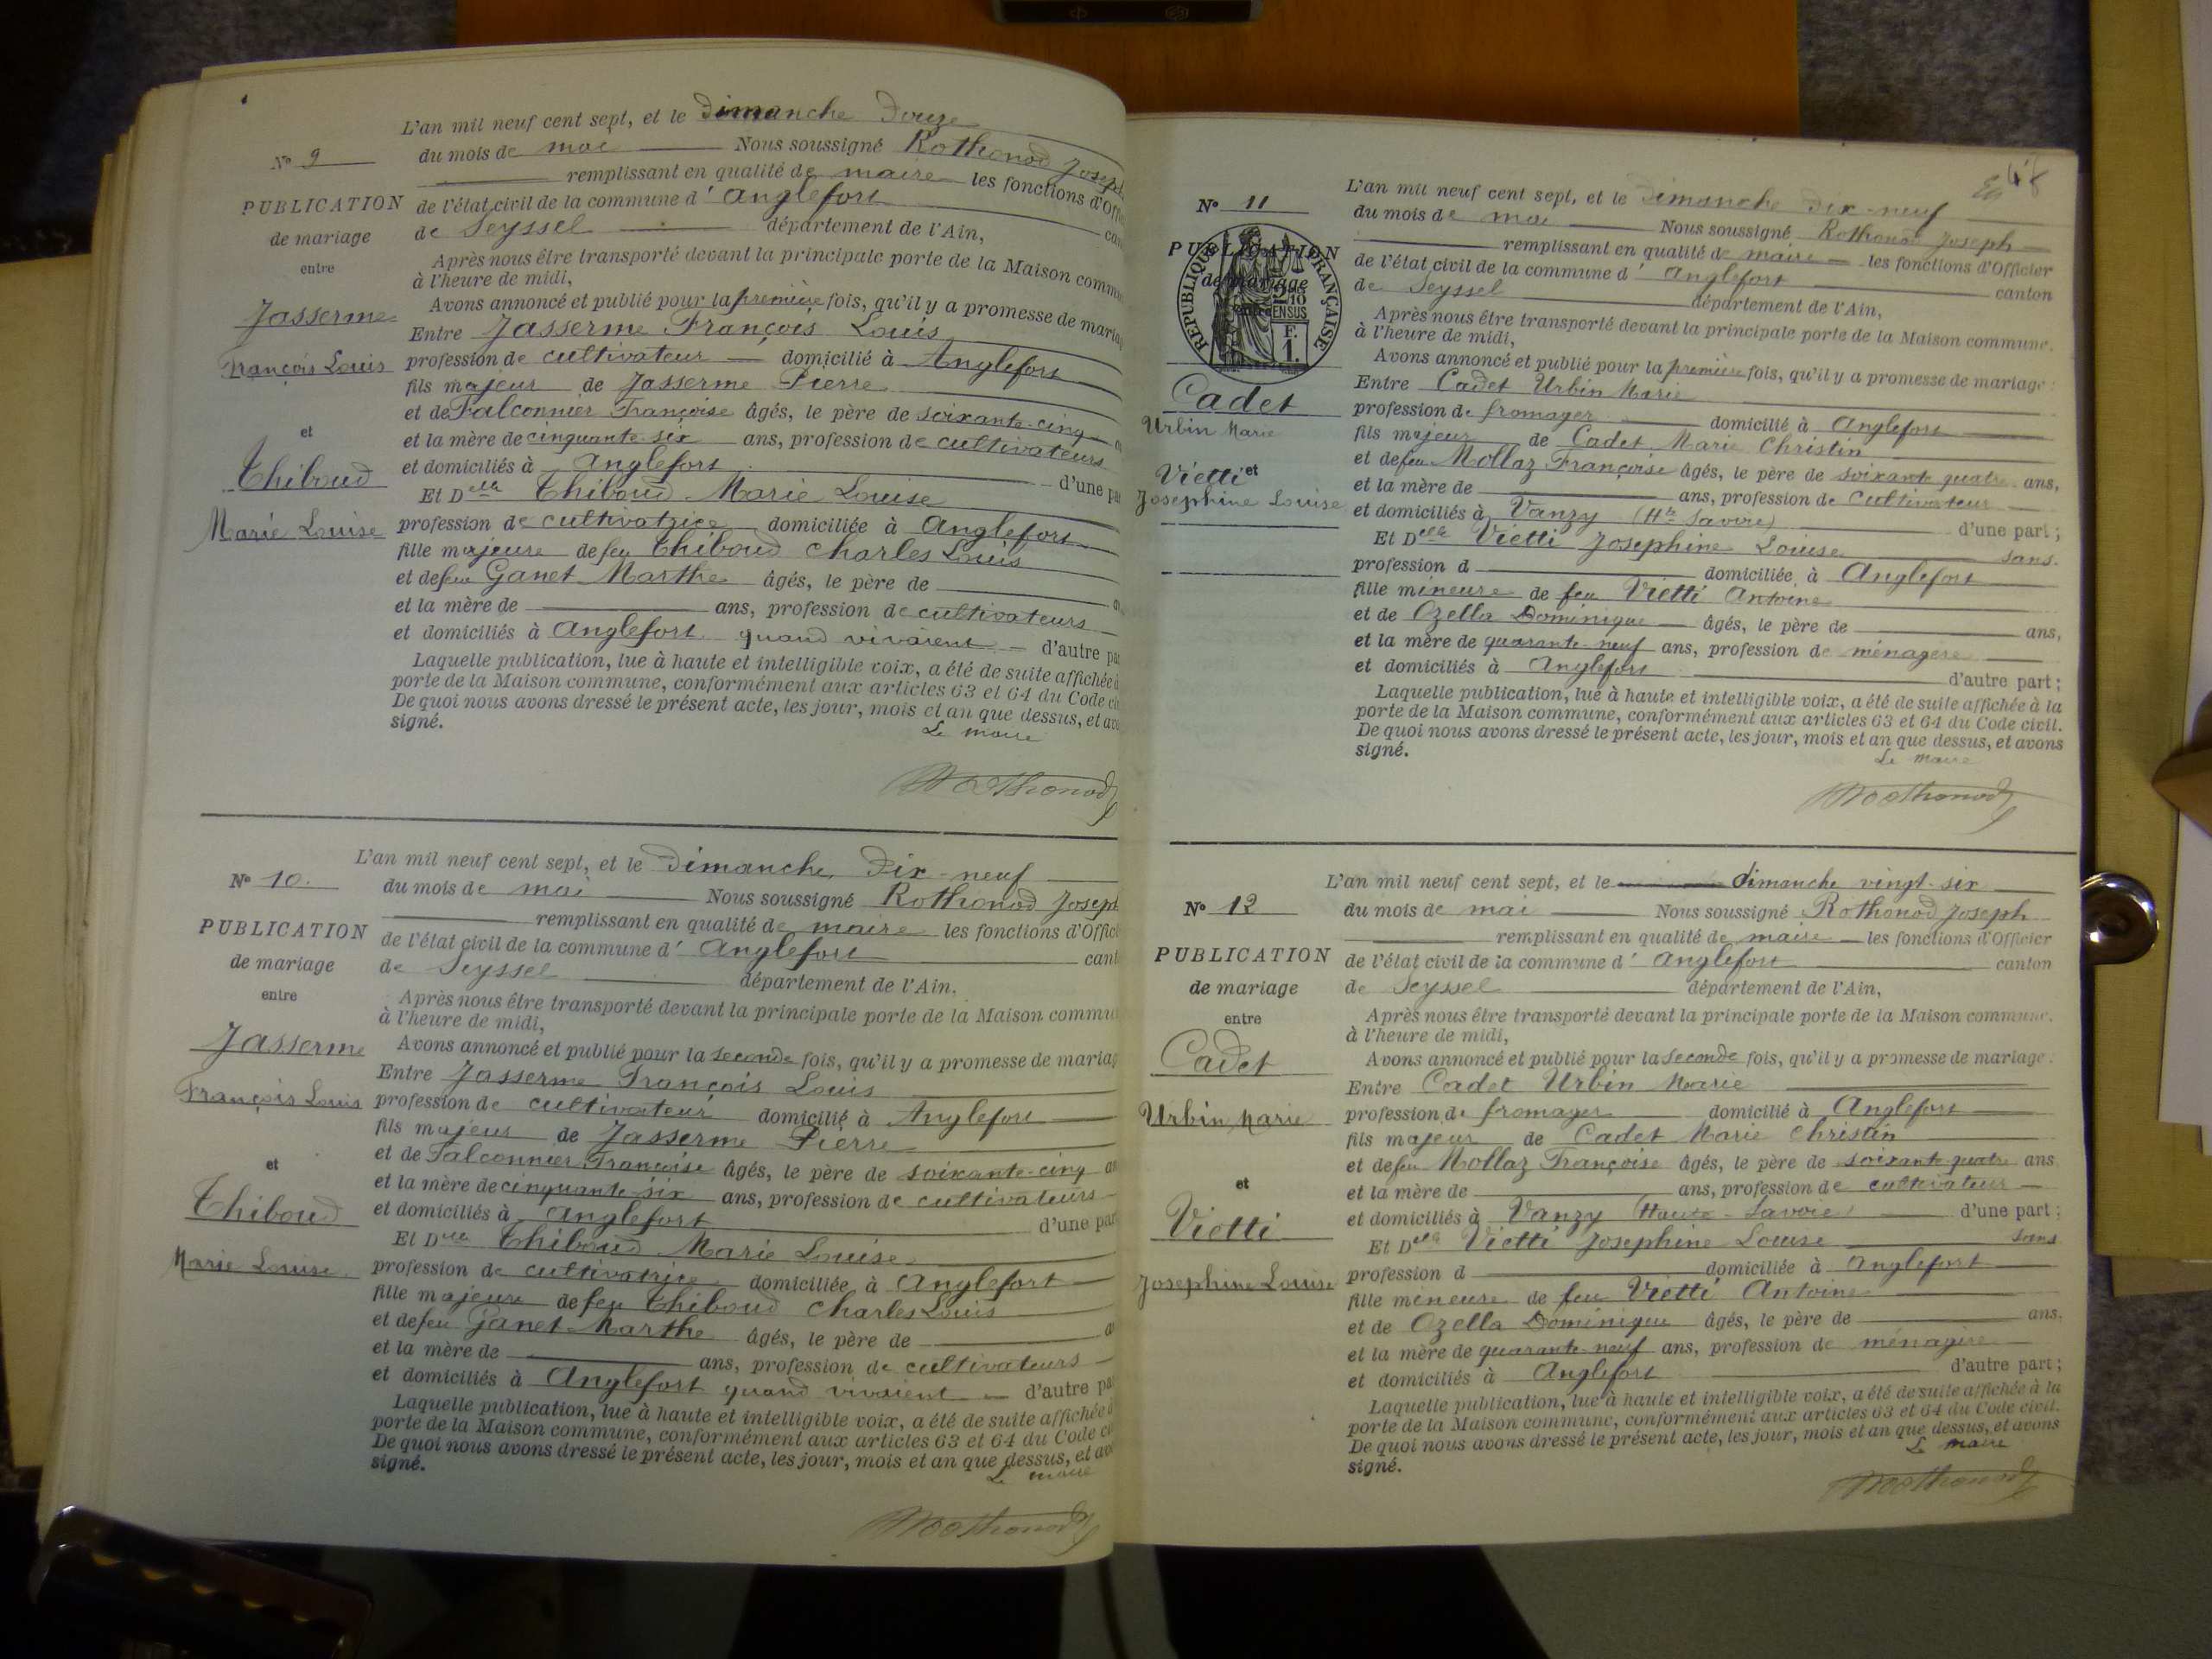 L'an mil neuf cent sept, et le Dimanche Douze
Nº 9
du mois de mai Nous soussigné Rothonod Joseph
remplissant en qualité de maire les fonctions d'Offi
PUBLICATION
de l'état civil de la commune d' Anglefort can
de mariage
de Seyssel département de l'Ain,
entre
Après nous être transporté devant la principale porte de la Maison commu
à l'heure de midi,
Avons annoncé et publié pour la première fois, qu'il y a promesse de maria
Jasserme
Entre Jasserme François Louis
François Louis
profession de cultivateur domicilié à Anglefort
fils majeur de Jasserme Pierre
et de Falconnier Françoise âgés, le père de soixante-cinq
et
et la mère de cinquante-six ans, profession de cultivateurs
Thiboud
et domiciliés à Anglefort d'une pa
Et Delle Thiboud Marie Louise
Marie Louise
profession de cultivatrice domiciliée à Anglefort
fille majeure de feu Thiboud Charles Louis
et de feu Ganet Marthe âgés, le père de
et la mère de ans, profession de cultivateurs
et domiciliés à Anglefort quand vivaient d'autre pa
Laquelle publication, lue à haute et intelligible voix, a été de suite affichée à
porte de la Maison commune, conformément aux articles 63 et 64 du Code ci
De quoi nous avons dressé le présent acte, les jour, mois et an que dessus, et avo
signé.
Le maire
Rothonod
L'an mil neuf cent sept, et le Dimanche Dix-neuf
Nº 10.
du mois de mai Nous soussigné Rothonod Joseph
remplissant en qualité de maire les fonctions d'Offici
PUBLICATION
de l'état civil de la commune d' Anglefort cant
de mariage
de Seyssel département de l'Ain.
entre
Après nous être transporté devant la principale porte de la Maison commu
à l'heure de midi,
Jasserme
Avons annoncé et publié pour la seconde fois, qu'il y a promesse de mariag
Entre Jasserme François Louis
François Louis
profession de cultivateur domicilié à Anglefort
fils majeur de Jasserme Pierre
et
et de Falconnier Françoise âgés, le père de soixante-cinq an
et la mère de cinquante-six ans, profession de cultivateurs
Thiboud
et domiciliés à Anglefort d'une par
Et Delle Thiboud Marie Louise
Marie Louise
profession de cultivatrice domiciliée à Anglefort
fille majeure de feu Thiboud Charles Louis
et de feu Ganet Marthe âgés, le père de a
et la mère de ans, profession de cultivateurs
et domiciliés à Anglefort quand vivaient d'autre pa
Laquelle publication, lue à haute et intelligible voix, a été de suite affichée à
porte de la Maison commune, conformément aux articles 63 et 64 du Code ci
De quoi nous avons dressé le présent acte, les jour, mois et an que dessus, et avo
signé.
Le maire
Rothonod
48
L'an mil neuf cent sept, et le Dimanche Dix-neuf
Nº 11
du mois de mai Nous soussigné Rothonod Joseph
remplissant en qualité de maire les fonctions d'Officier
PUBLICATION
de l'état civil de la commune d' Anglefort canton
de mariage
de Seyssel département de l'Ain,
entre
RÉPUBLIQUE FRANÇAISE
2/10 EN SUS
F. 1.
Après nous être transporté devant la principale porte de la Maison commune.
à l'heure de midi,
Avons annoncé et publié pour la première fois, qu'il y a promesse de mariage :
Cadet
Entre Cadet Urbin Marie
Urbin Marie
profession de fromager domicilié à Anglefort
fils majeur de Cadet Marie Christin
et
Vietti
et de feu Mollaz Françoise âgés, le père de soixante quatre ans,
Josephine Louise
et la mère de ans, profession de cultivateur
et domiciliés à Vanzy (Hte Savoie) d'une part ;
Et Delle Vietti Josephine Louise sans
profession d domiciliée à Anglefort
fille mineure de feu Vietti Antoine
et de Ozella Dominique âgés, le père de ans,
et la mère de quarante-neuf ans, profession de ménagère
et domiciliés à Anglefort d'autre part ;
Laquelle publication, lue à haute et intelligible voix, a été de suite affichée à la
porte de la Maison commune, conformément aux articles 63 et 64 du Code civil.
De quoi nous avons dressé le présent acte, les jour, mois et an que dessus, et avons
signé.
Le maire
Rothonod
L'an mil neuf cent sept, et le dimanche vingt-six
Nº 12
du mois de mai Nous soussigné Rothonod Joseph
remplissant en qualité de maire les fonctions d'Officier
PUBLICATION
de l'état civil de la commune d' Anglefort canton
de mariage
de Seyssel département de l'Ain,
entre
Après nous être transporté devant la principale porte de la Maison commune.
à l'heure de midi,
Cadet
Avons annoncé et publié pour la seconde fois, qu'il y a promesse de mariage :
Entre Cadet Urbin Marie
Urbin Marie
profession de fromager domicilié à Anglefort
fils majeur de Cadet Marie Christin
et de feu Mollaz Françoise âgés, le père de soixante-quatre ans
et
et la mère de ans, profession de cultivateur
Vietti
et domiciliés à Vanzy (Haute-Savoie) d'une part ;
Et Delle Vietti Josephine Louise sans
Josephine Louise
profession d domiciliée à Anglefort
fille mineure de feu Vietti Antoine
et de Ozella Dominique âgés, le père de ans,
et la mère de quarante-neuf ans, profession de ménagère
et domiciliés à Anglefort d'autre part ;
Laquelle publication, lue à haute et intelligible voix, a été de suite affichée à la
porte de la Maison commune, conformément aux articles 63 et 64 du Code civil.
De quoi nous avons dressé le présent acte, les jour, mois et an que dessus, et avons
signé.
Le maire
Rothonod